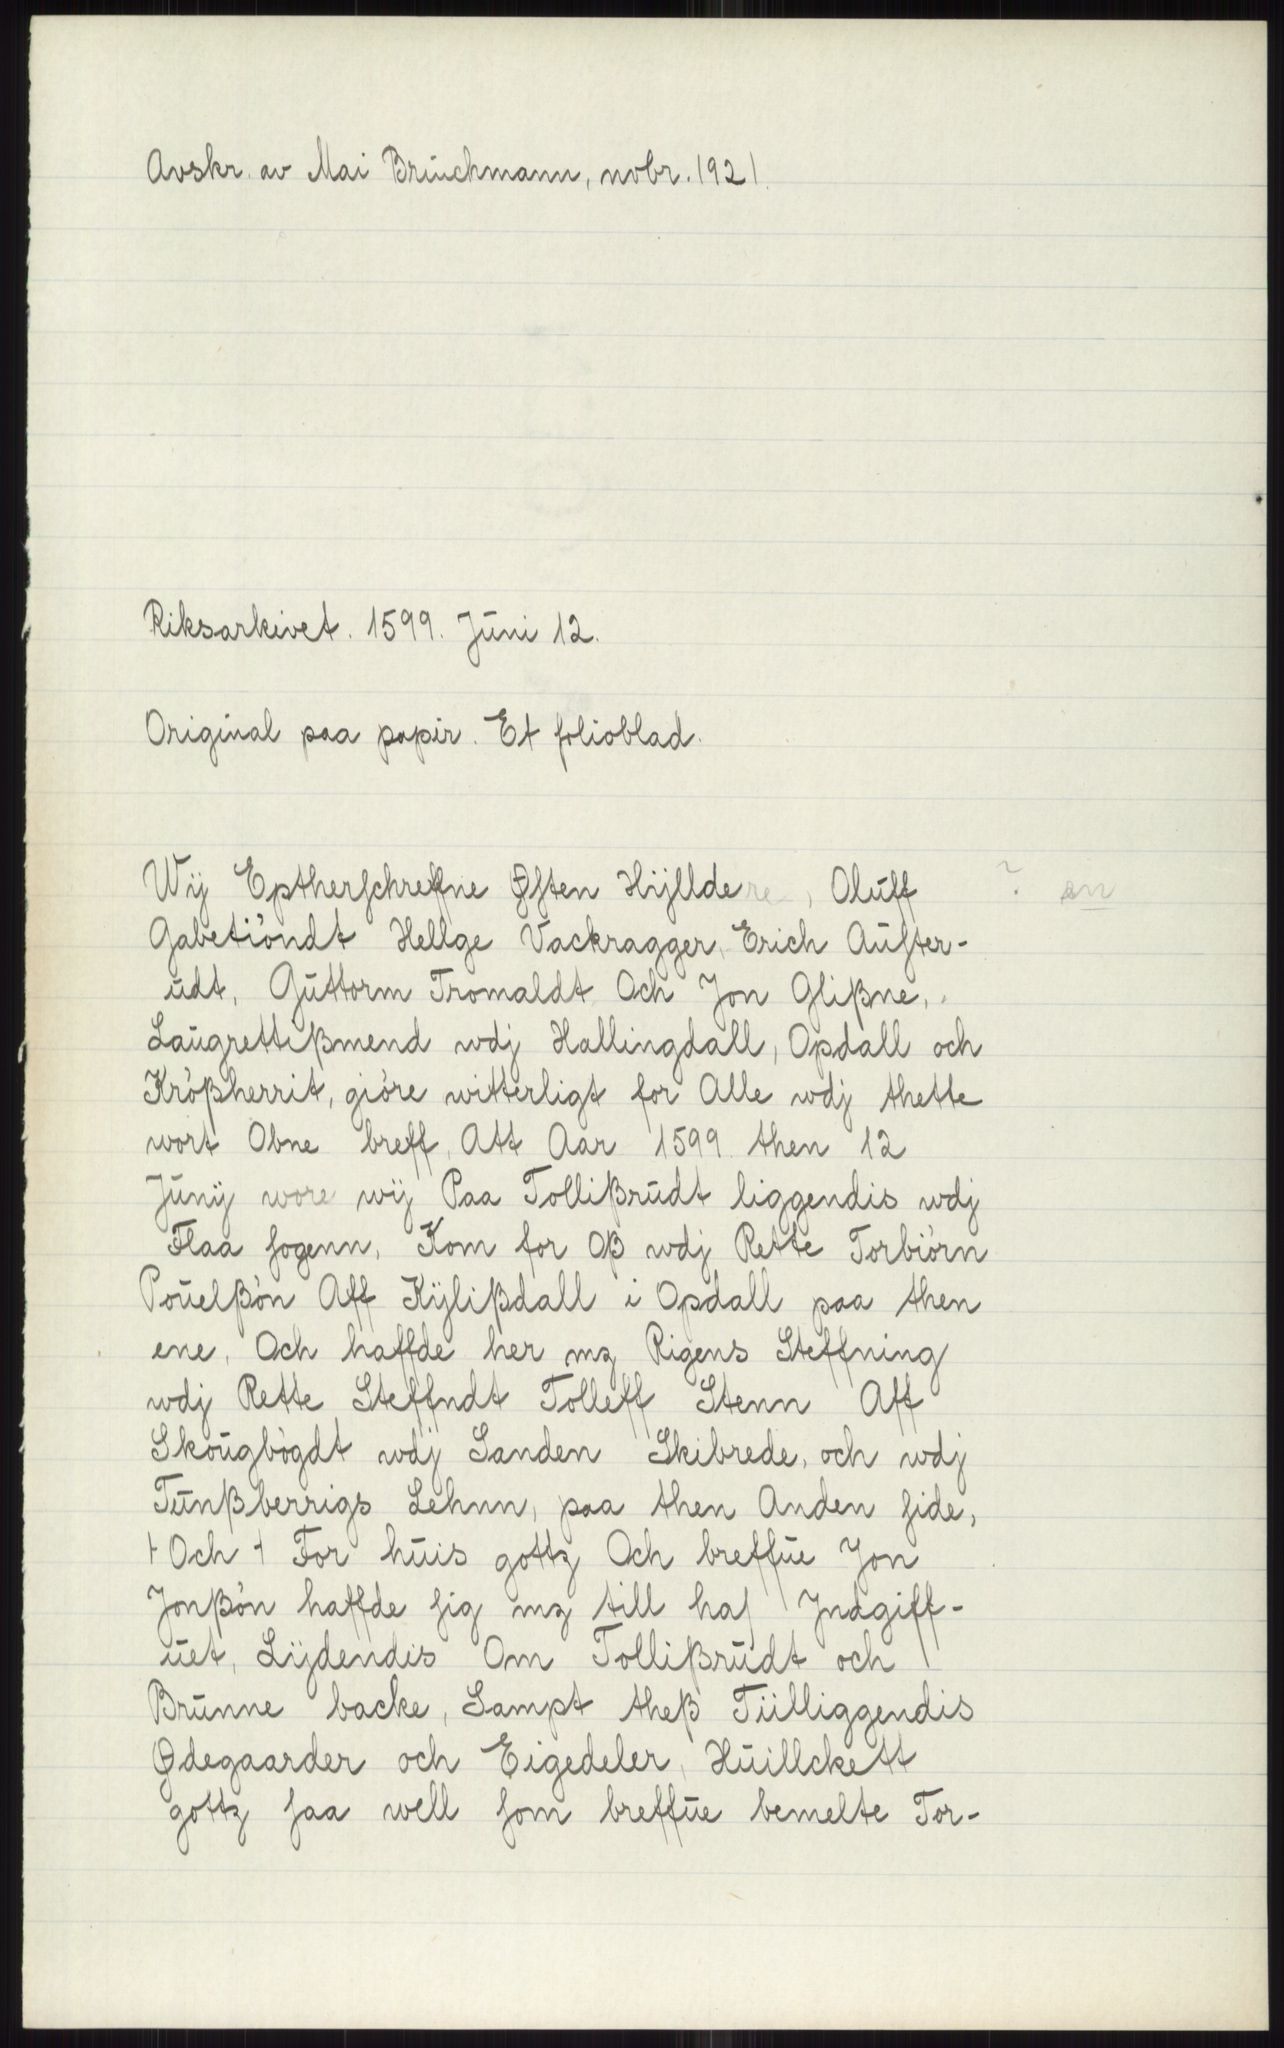 Avskr. av Mai Bruchmann, novbr. 1921.
Riksarkivet. 1599. Juni 12.
Original paa papir. Et folioblad.
Wij Eptherſchreffne Øſten Hijlldere, Oluff ? en
Gabetiöndt Hellge Vackragger, Erich Auſter-
udt, Guttorm Tromaldt Och Jon Glißne,
Laugrettißmend wdj Hallingdall, Opdall och
Krößherrit, giöre witterligt for Alle wdj thette
wort Obne breff, Att Aar 1599 then 12
Junij wore wij Paa Tollißrudt liggendis wdj
Flaa ſogenn, Kom for Oß wdj Rette Torbiörn
Pouelßön Aff Kijlißdall i Opdall paa then
ene, Och haffde her mz Rigens Steffning
wdj Rette Steffndt Tolleff Stenn Aff
Skougbögdt wdj Sanden Skibrede, och wdj
Tunßberrigs Lehnn, paa then Anden ſide,
꜔ Och ꜔ For huis gottz Och breffue Jon
Jonßön haffde ſig mz till haſ Jndgiff-
uet, Lijdendis Om Tollißrudt och
Brunne backe, Sampt theß Tiilliggendis
Ødegaarder och Eigedeler, Huillckett
gottz ſaa well ſom breffue bemelte Tor-